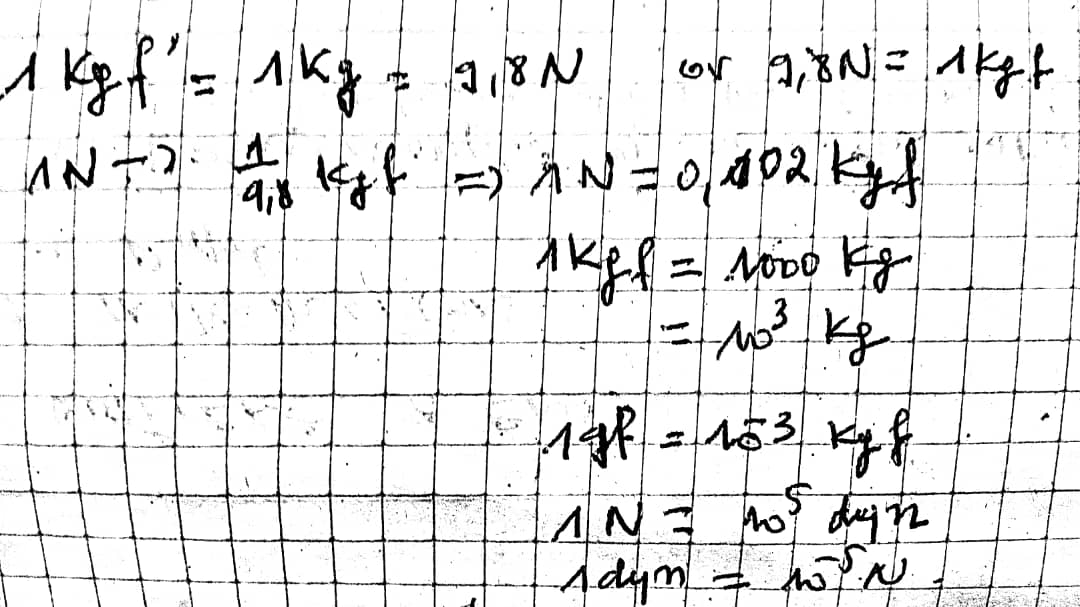 1 Kgf' = 1 Kg = 9,8 N or 9,8 N = 1 kgf
1 N → 1/9,8 Kgf => 1 N = 0,102 kgf
1 Kgf = 1000 kg
= 10³ kg
1 gf = 10⁻³ Kgf
1 N = 10⁵ dyn
1 dyn = 10⁻⁵ N